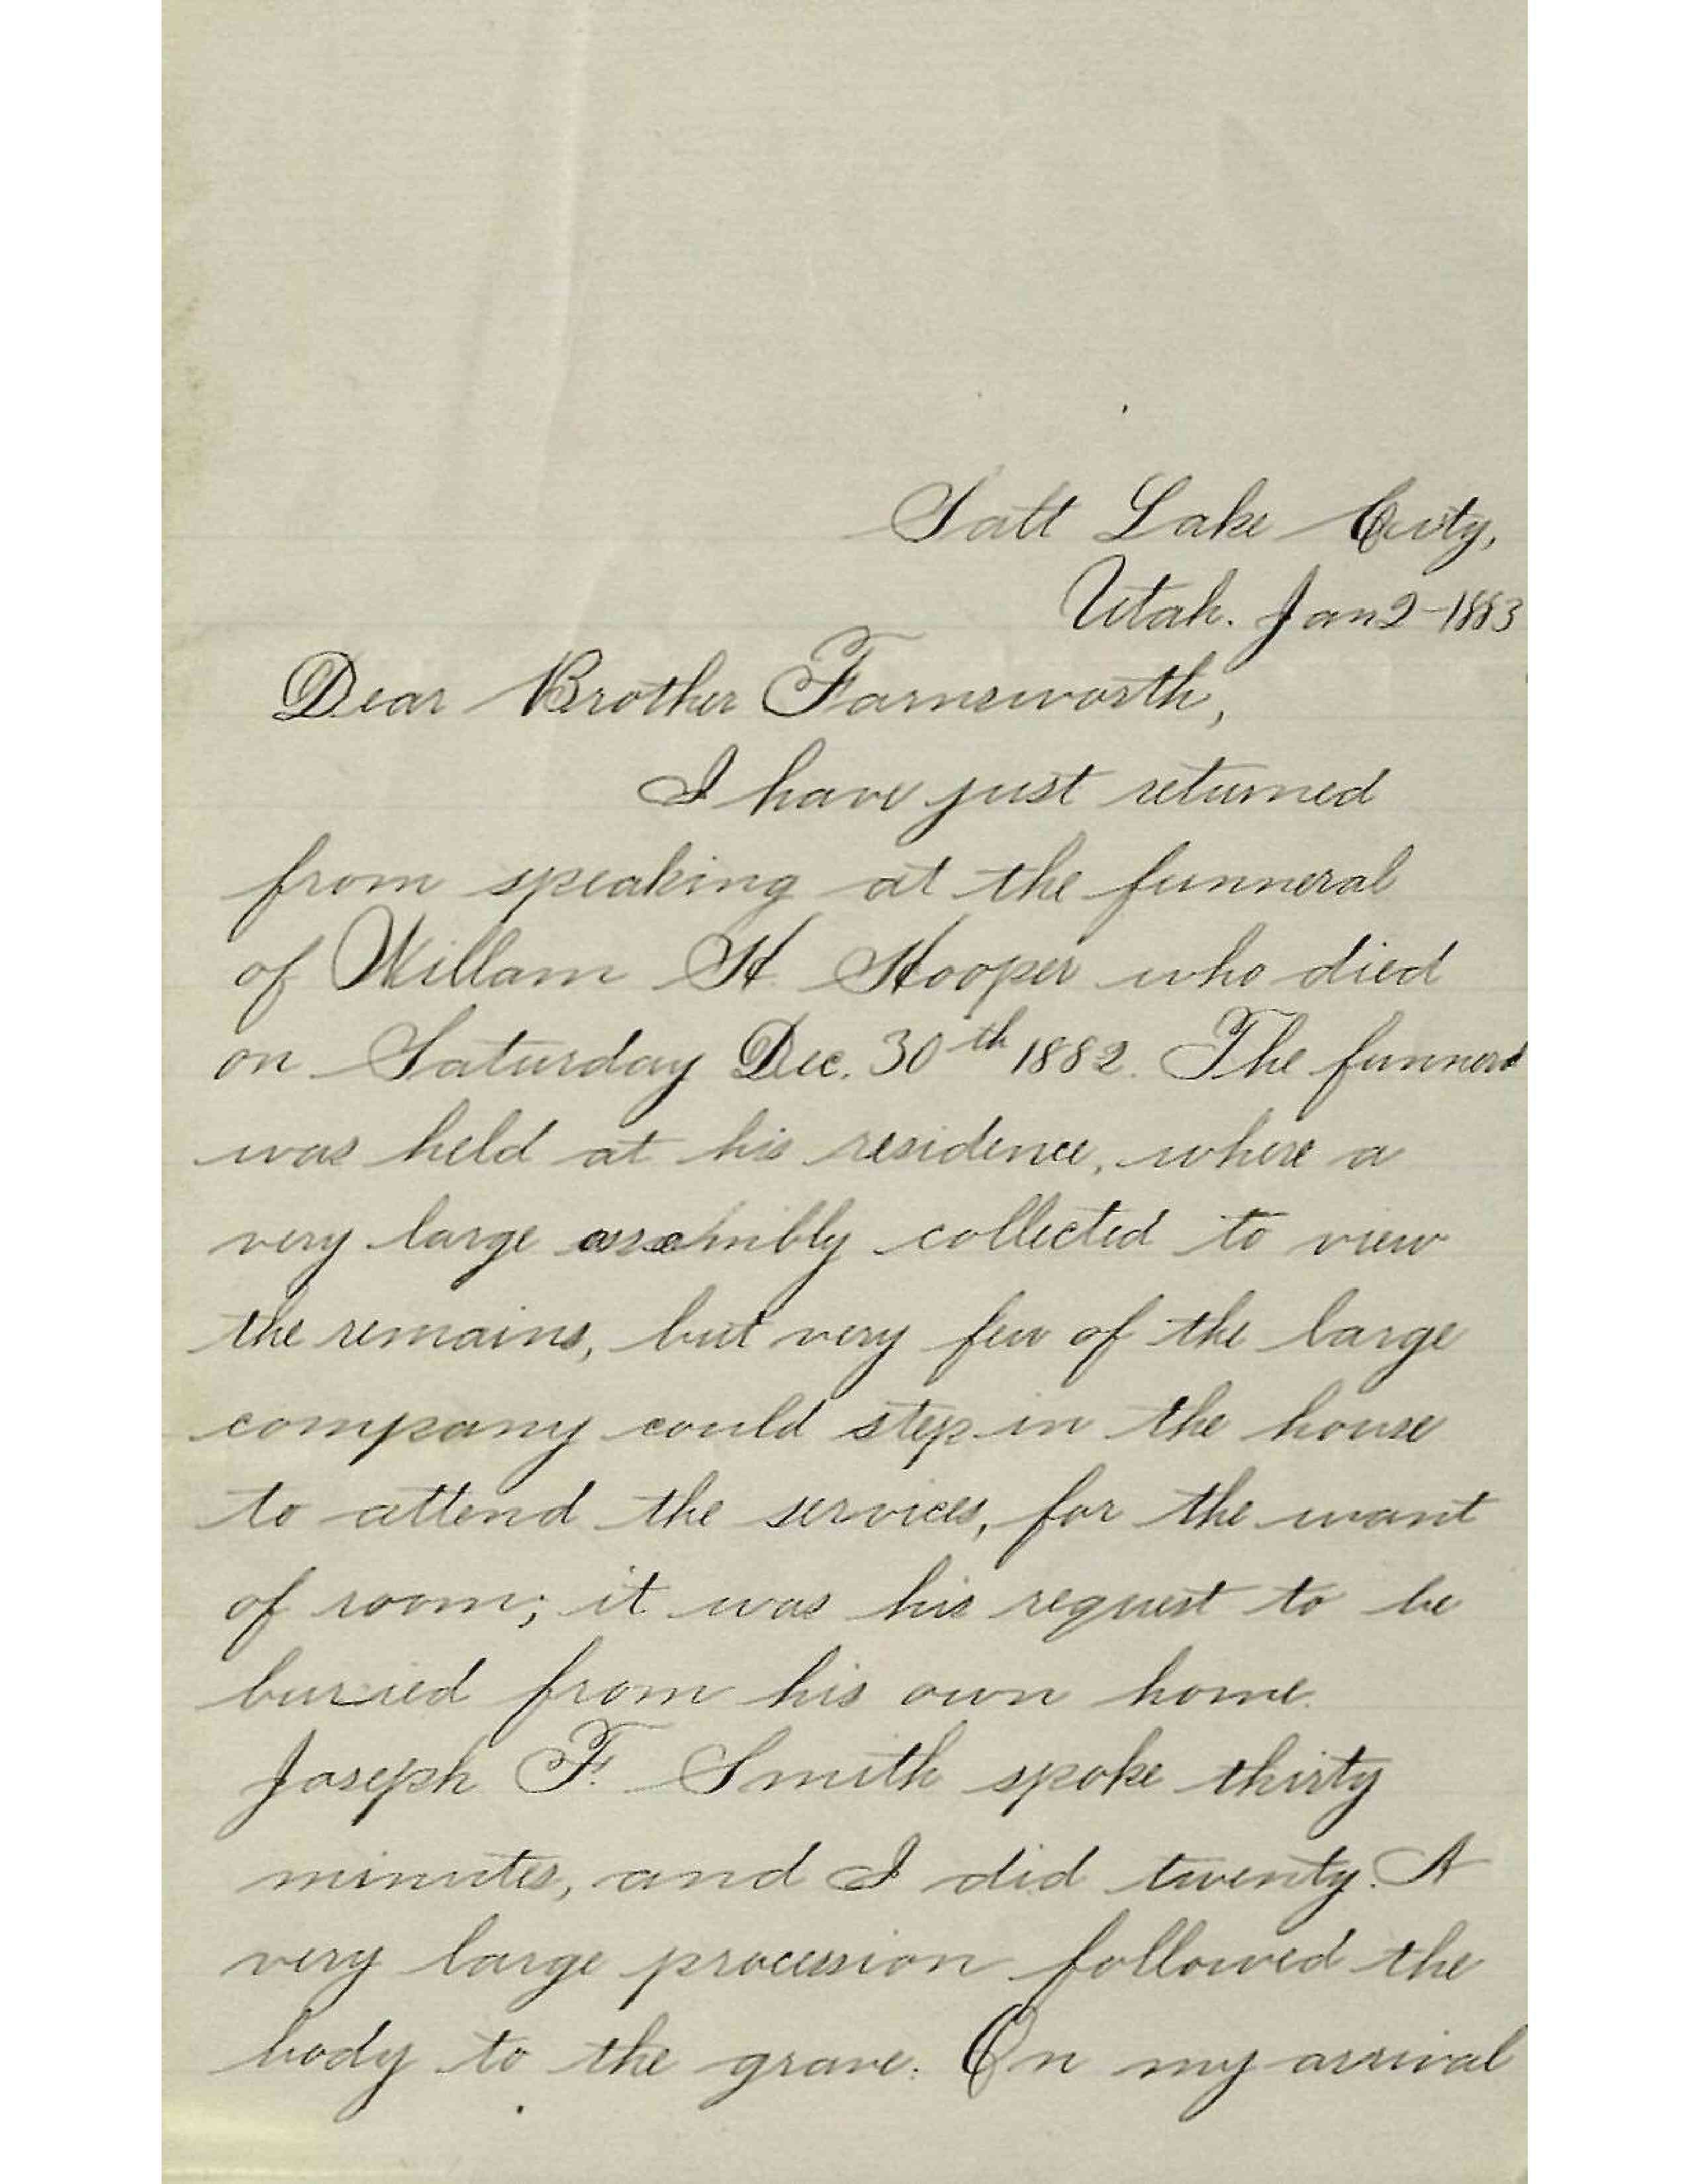 Salt Lake City,
Utah. Jan 2-1883
Dear Brother Farnsworth,
I have just returned
from speaking at the funneral
of Willam H. Hooper who died
on Saturday Dec. 30th 1882. The funneral
was held at his residence, where a
very large assembly collected to view
the remains, but very few of the large
company could step in the house
to attend the services, for the want
of room; it was his request to be
buried from his own home.
Joseph F. Smith spoke thirty
minutes, and I did twenty. A
very large procession followed the
body to the grave. On my arrival